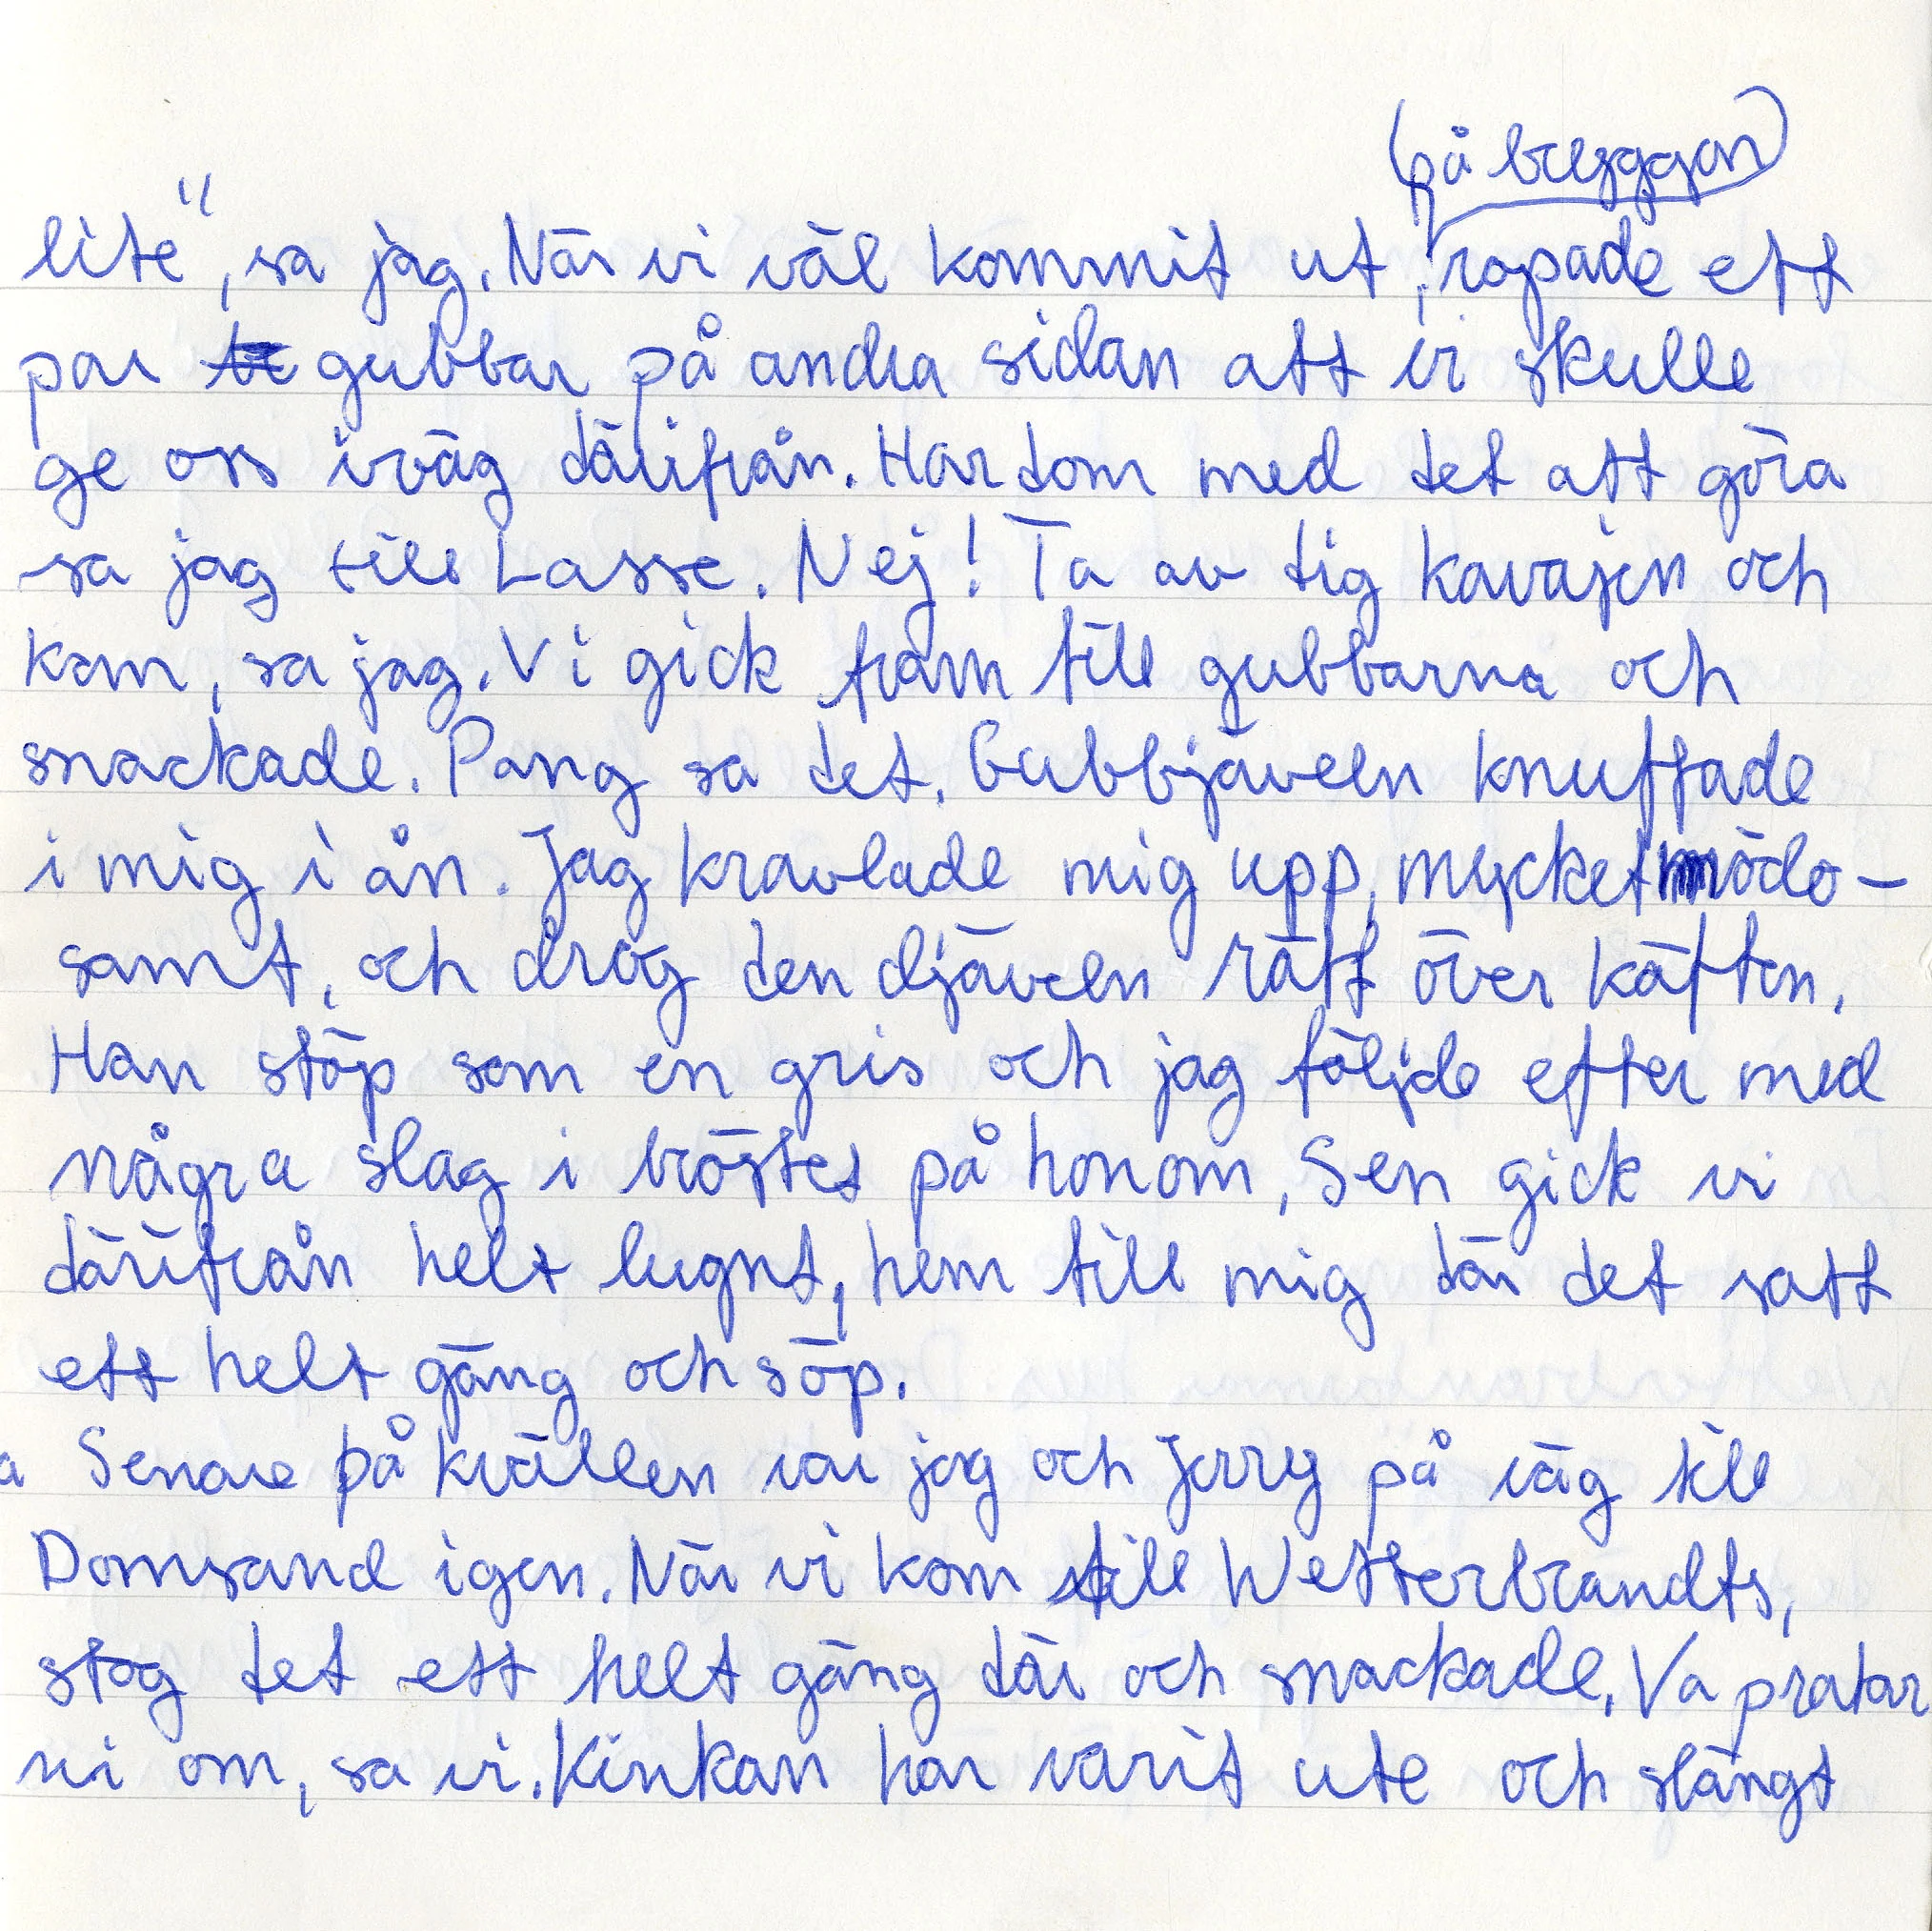 på bryggan
lite", sa jag. När vi väl kommit ut, ropade ett
par gubbar på andra sidan att vi skulle
ge oss iväg därifrån. Har dom med det att göra
sa jag till Lasse. Nej! Ta av dig kavajen och
kom, sa jag. Vi gick fram till gubbarna och
snackade. Pang sa det. Gubbjäveln knuffade
i mig i ån. Jag kravlade mig upp, mycket mödo-
samt, och drog den djäveln rätt över käften.
Han stöp som en gris och jag följde efter med
några slag i bröstet på honom, Sen gick vi
därifrån helt lugnt, hem till mig där det satt
ett helt gäng och söp.
a Senare på kvällen var jag och Jerry på väg till
Domsand igen. När vi kom till Wetterbrandts,
stog det ett helt gäng där och snackade. Va pratar
ni om, sa vi. Kinkan har varit ute och slängt